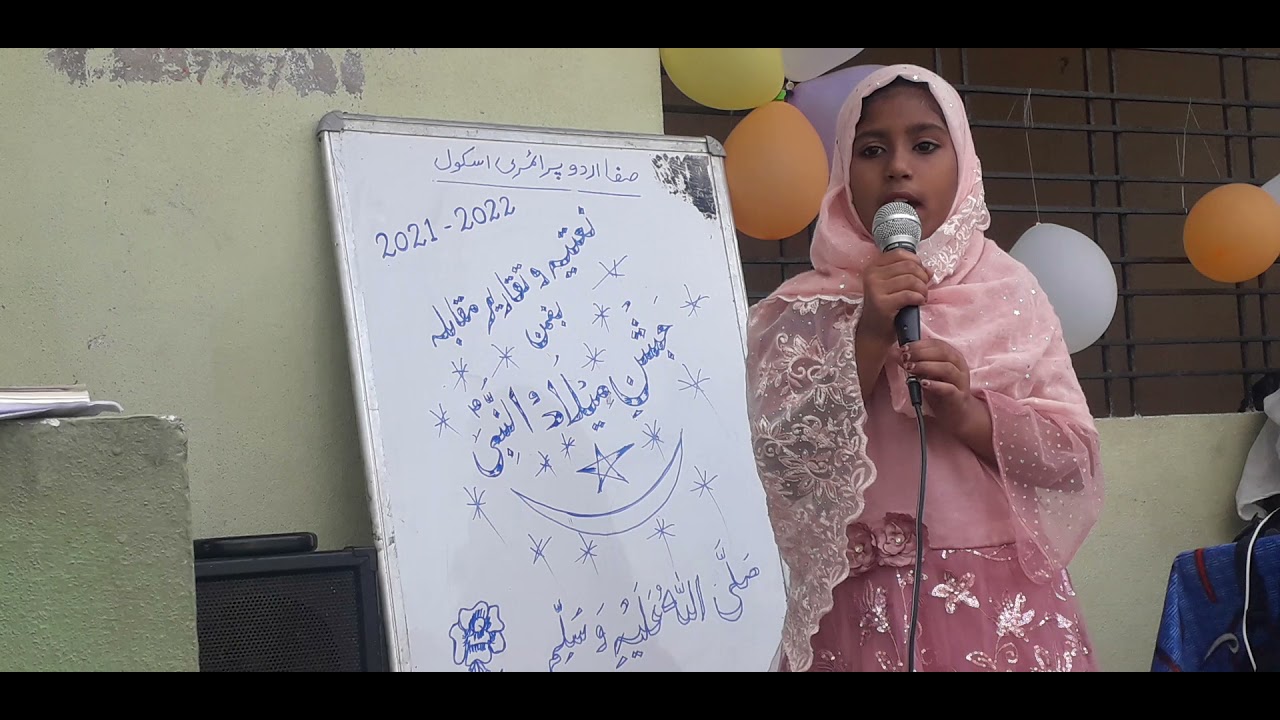 صفا اردو پرائمری اسکول
2021-2022
نعتیہ و تقاریر مقابلہ
بضمن
جَشْنِ مِیْلَادُ النَّبِیؐ
صَلَّی اللّٰهُ عَلَیْهِ وَ سَلَّم